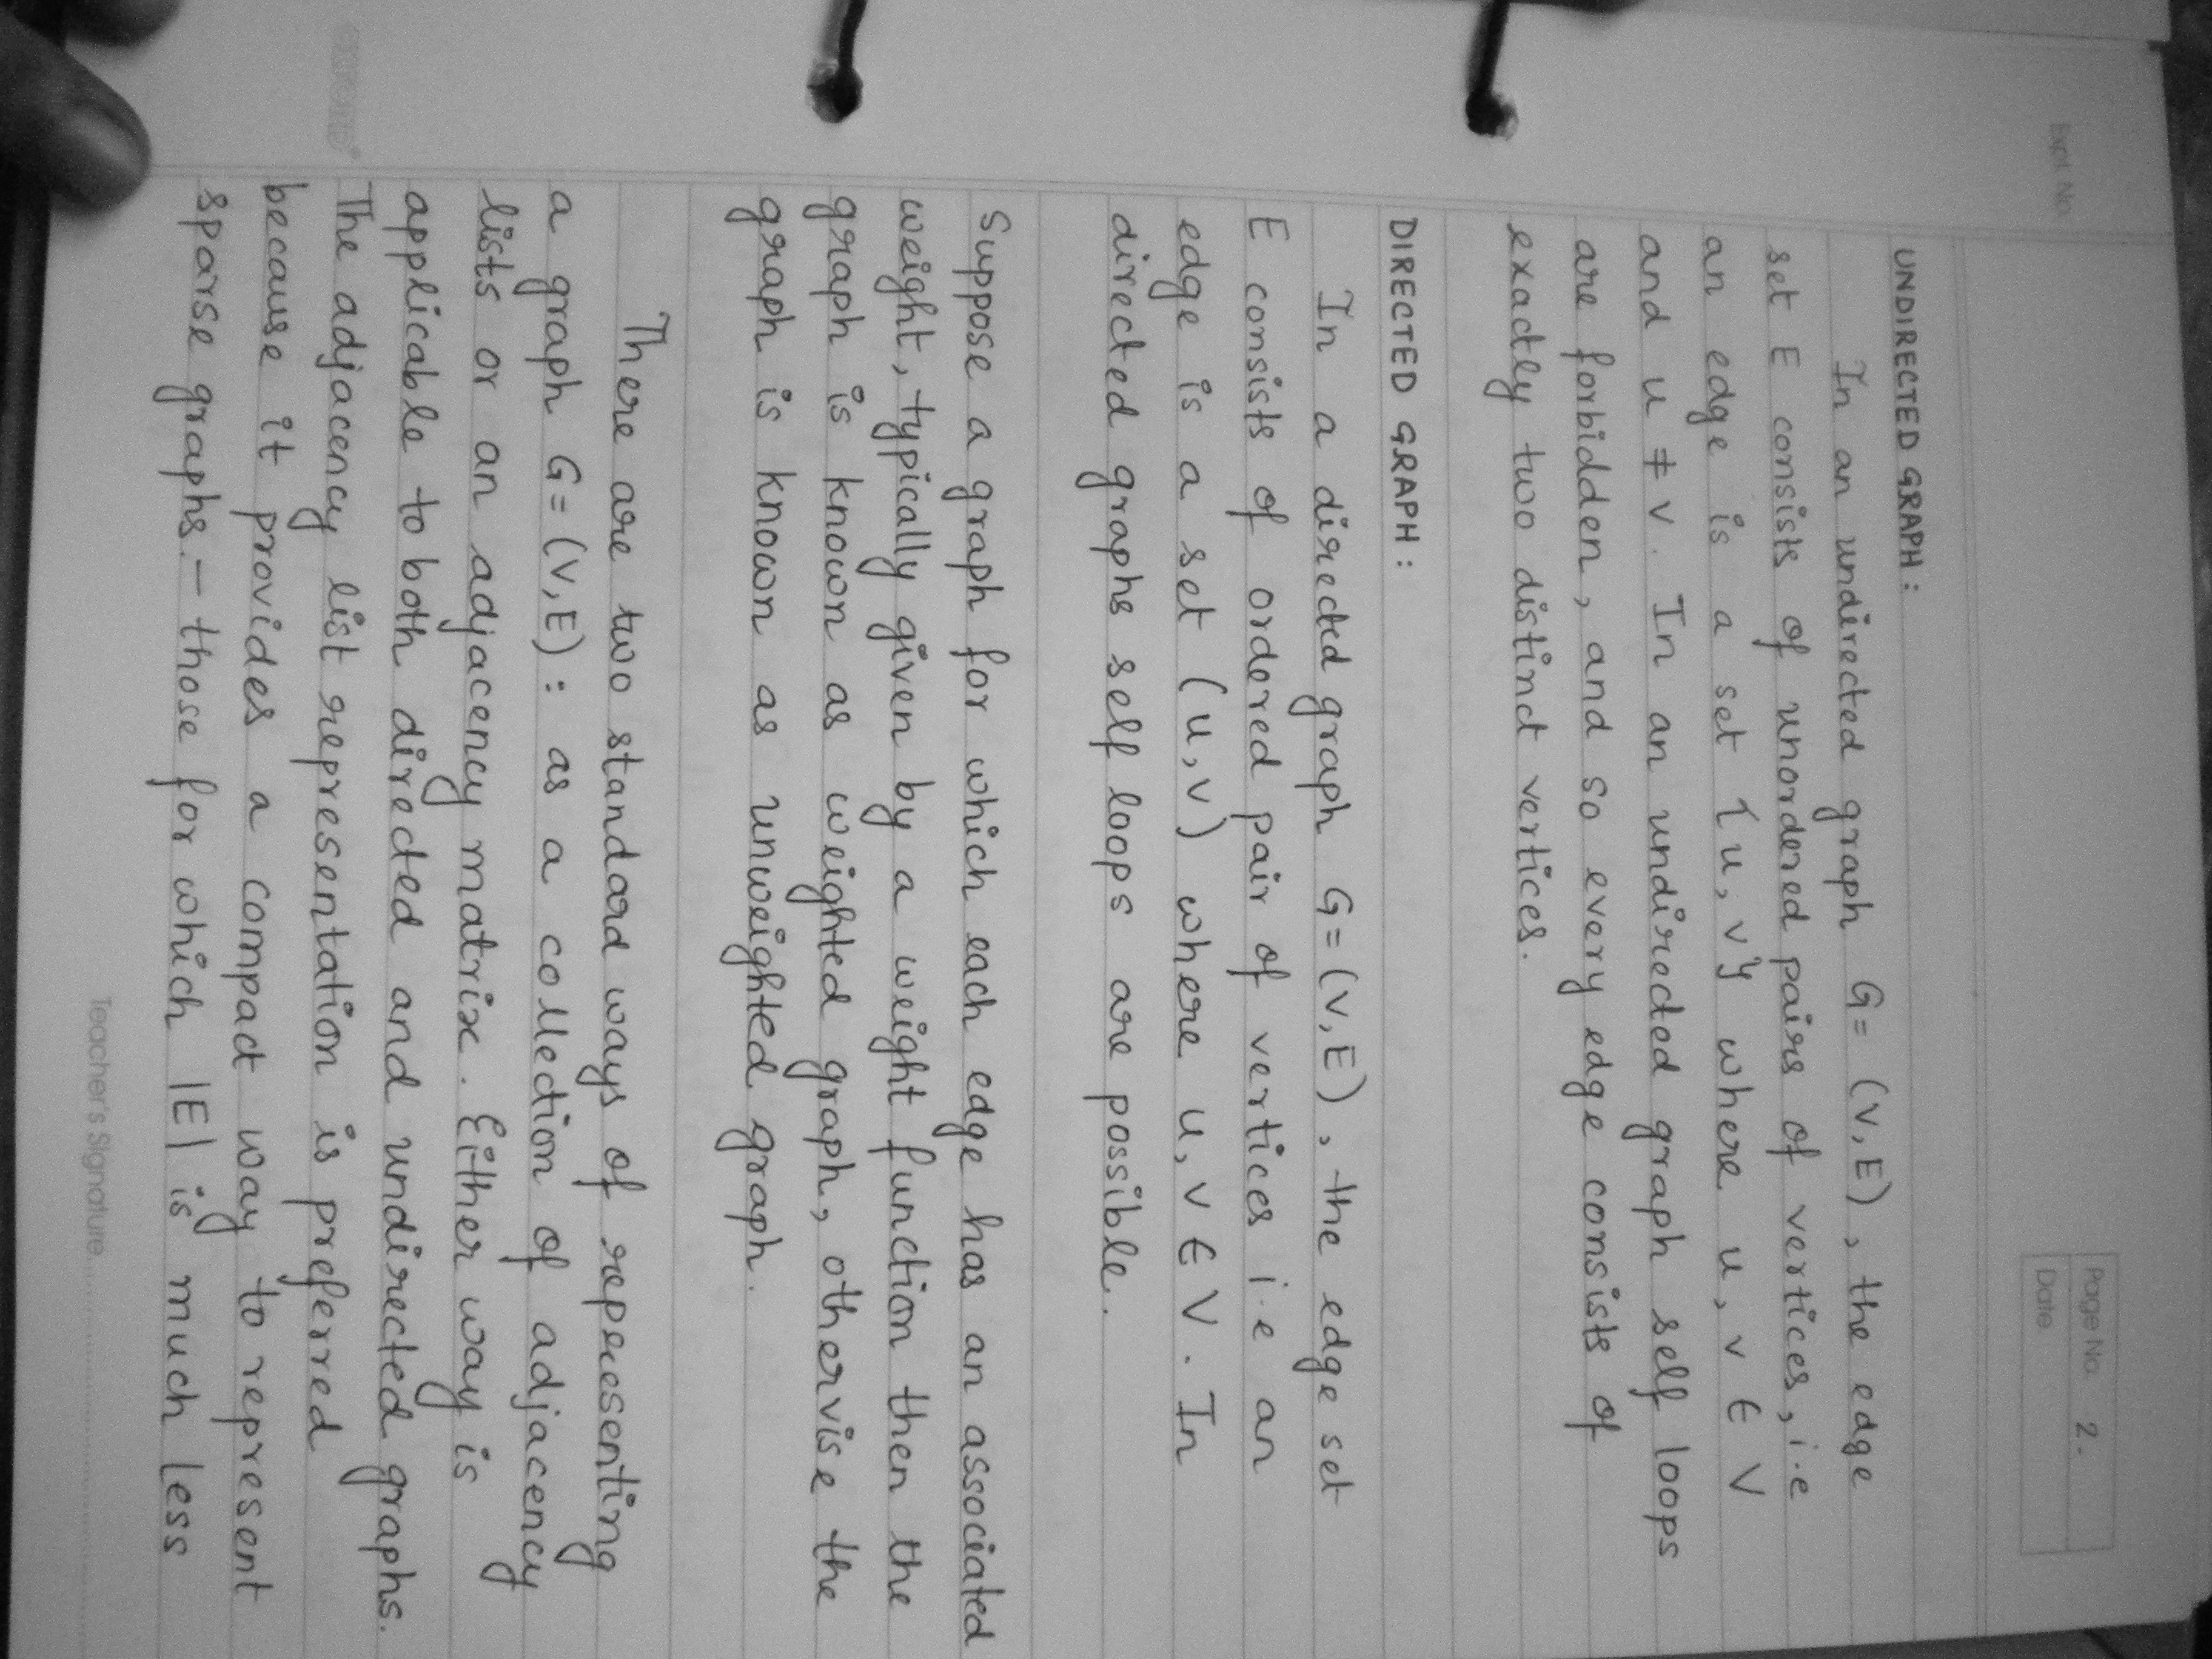 Expt. No.
Page No. 2.
Date
UNDIRECTED GRAPH :
In an undirected graph G = (V, E), the edge
set E consists of unordered pairs of vertices, i.e
an edge is a set {u, v} where u, v ∈ V
and u ≠ v. In an undirected graph self loops
are forbidden, and so every edge consists of
exactly two distinct vertices.
DIRECTED GRAPH :
In a directed graph G = (V, E), the edge set
E consists of ordered pair of vertices i.e an
edge is a set (u, v) where u, v ∈ V. In
directed graphs self loops are possible.
Suppose a graph for which each edge has an associated
weight, typically given by a weight function then the
graph is known as weighted graph, othervise the
graph is known as unweighted graph.
There are two standard ways of representing
a graph G = (V, E) : as a collection of adjacency
lists or an adjacency matrix. Either way is
applicable to both directed and undirected graphs.
The adjacency list representation is preferred
because it provides a compact way to represent
sparse graphs. – those for which |E| is much less
Teacher's Signature